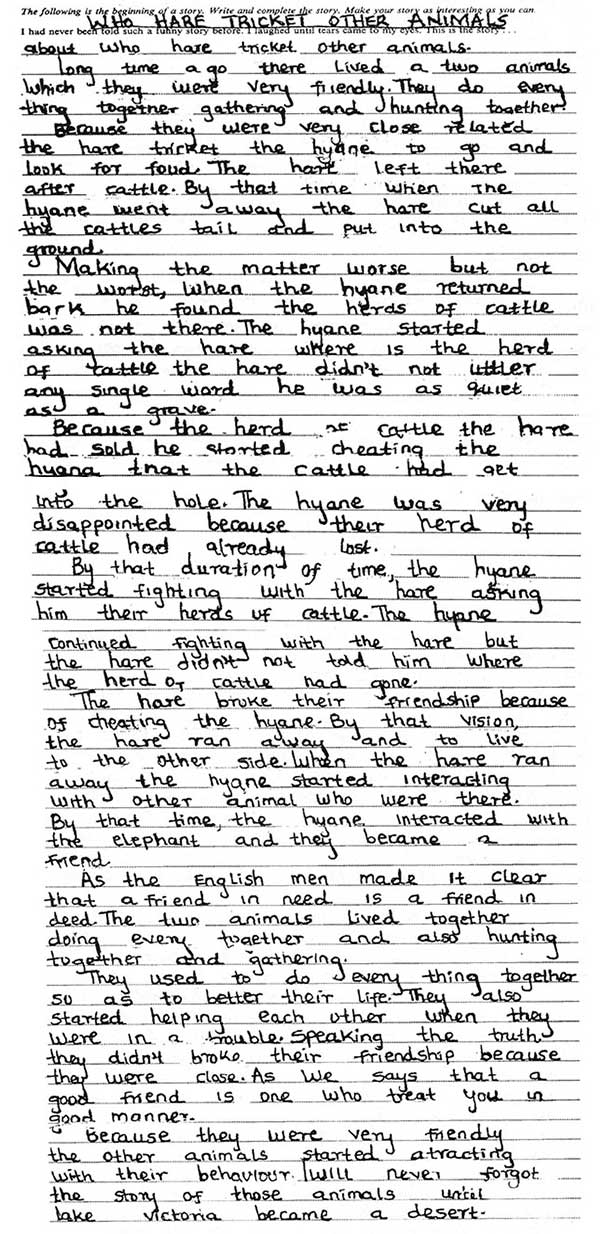 The following is the beginning of a story. Write and complete the story. Make your story as interesting as you can
WHO HARE TRICKET OTHER ANIMALS
I had never been told such a funny story before. I laughed until tears came to my eyes. This is the story . . .
about who hare tricket other animals.
Long time a go there lived a two animals
which they were very friendly. They do every
thing together gathering and hunting together.
Because they were very close related
the hare tricket the hyane to go and
look for foud. The hare left there
after cattle. By that time when The
hyane went away the hare cut all
the cattles tail and put into the
ground.
Making the matter worse but not
the worst, when the hyane returned
bark he found the herds of cattle
was not there. The hyane started
asking the hare where is the herd
of cattle the hare didn't not utter
any single word he was as quiet
as a grave.
Because the herd of cattle the hare
had sold he started cheating the
hyana that the cattle had get
into the hole. The hyane was very
disappointed because their herd of
cattle had already lost.
By that duration of time, the hyane
started fighting with the hare asking
him their herds of cattle. The hyane
continued fighting with the hare but
the hare didn't not told him where
the herd of cattle had gone.
The hare broke their friendship because
of cheating the hyane. By that vision,
the hare ran away and to live
to the other side. When the hare ran
away the hyane started interacting
with other animal who were there.
By that time, the hyane interacted with
the elephant and they became a
friend.
As the English men made it clear
that a friend in need is a friend in
deed. The two animals lived together
doing every together and also hunting
together and gathering.
They used to do every thing together
so as to better their life. They also
started helping each other when they
were in a trouble. Speaking the truth,
they didn't broke their friendship because
they were close. As we says that a
good friend is one who treat you in
good manner.
Because they were very friendly
the other animals started atracting
with their behaviour. I will never forgot
the story of those animals until
lake victoria became a desert.